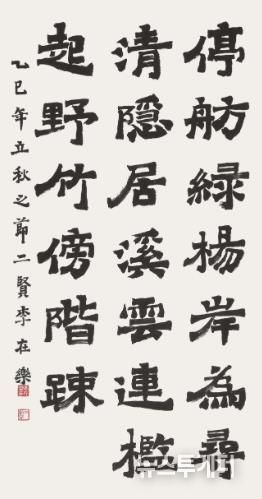 停舫綠楊岸為尋
清隱居溪雲連檻
起野竹傍階踈
乙巳年立秋之節二賢李在樂
뉴스투게더